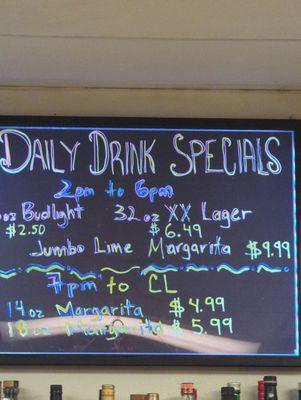 DAILY DRINK SPECIALS
2pm to 6pm
oz Budlight 32 oz XX Lager
$2.50 $6.49
Jumbo Lime Margarita $9.99
7pm to CL
14 oz Margarita $4.99
18 oz Margarita $5.99